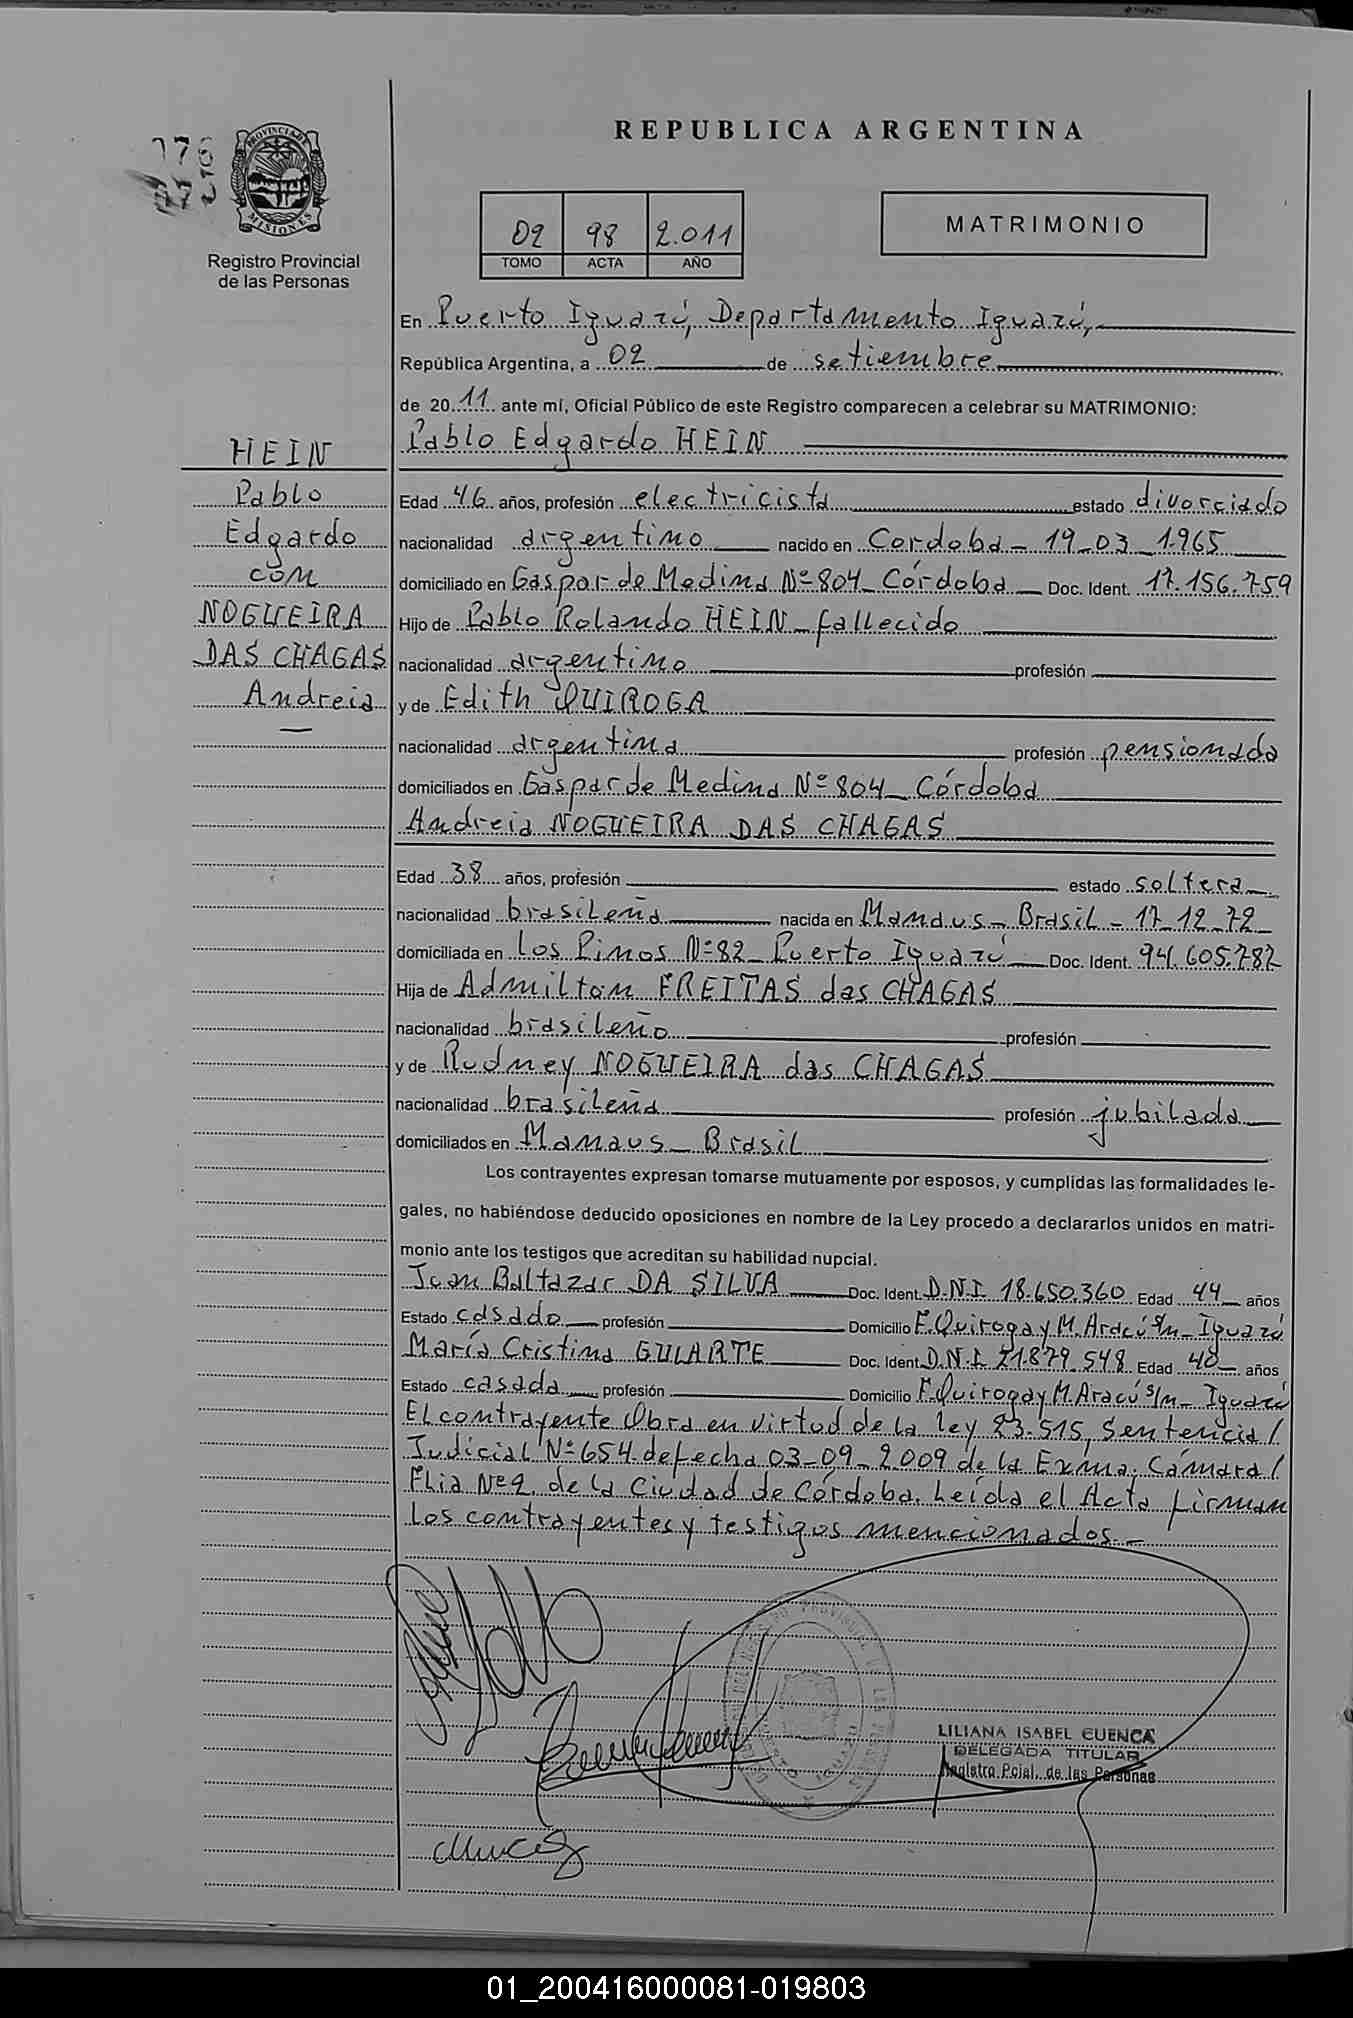 REPUBLICA ARGENTINA
PROVINCIA DE
MISIONES
Registro Provincial
de las Personas
MATRIMONIO
02 98 2.011
TOMO ACTA AÑO
En Puerto Iguazú, Departamento Iguazú,
República Argentina, a 02 de setiembre
de 2011 ante mí, Oficial Público de este Registro comparecen a celebrar su MATRIMONIO:
HEIN
Pablo
Edgardo
con
NOGUEIRA
DAS CHAGAS
Andreia
Pablo Edgardo HEIN
Edad 46 años, profesión electricista estado divorciado
nacionalidad argentino nacido en Cordoba - 19-03-1965
domiciliado en Gaspar de Medina Nº 804 - Córdoba Doc. Ident. 17.156.759
Hijo de Pablo Rolando HEIN - fallecido
nacionalidad argentino profesión
y de Edith QUIROGA
nacionalidad argentina profesión pensionada
domiciliados en Gaspar de Medina Nº 804 - Córdoba
Andreia NOGUEIRA DAS CHAGAS
Edad 38 años, profesión estado soltera
nacionalidad brasileña nacida en Manaus - Brasil - 17-12-72
domiciliada en Los Pinos Nº 82 - Puerto Iguazú Doc. Ident. 94.605.782
Hija de Admilton FREITAS das CHAGAS
nacionalidad brasileño profesión
y de Rudney NOGUEIRA das CHAGAS
nacionalidad brasileña profesión jubilada
domiciliados en Manaus - Brasil
Los contrayentes expresan tomarse mutuamente por esposos, y cumplidas las formalidades le-
gales, no habiéndose deducido oposiciones en nombre de la Ley procedo a declararlos unidos en matri-
monio ante los testigos que acreditan su habilidad nupcial.
Juan Baltazar DA SILVA Doc. Ident. D.N.I. 18.650.360 Edad 44 años
Estado casado profesión Domicilio F. Quiroga y M. Aracú s/n - Iguazú
María Cristina GULARTE Doc. Ident. D.N.I. 21.879.548 Edad 40 años
Estado casada profesión Domicilio F. Quiroga y M. Aracú s/n - Iguazú
El contrayente Obra en virtud de la ley 23.515, Sentencia/
Judicial Nº 654 de fecha 03-09-2009 de la Exma. Cámara/
Flia Nº 2 de la Ciudad de Córdoba. Leída el Acta firman
los contrayentes y testigos mencionados -
LILIANA ISABEL CUENCA
DELEGADA TITULAR
Registro Pcial. de las Personas
01_200416000081-019803